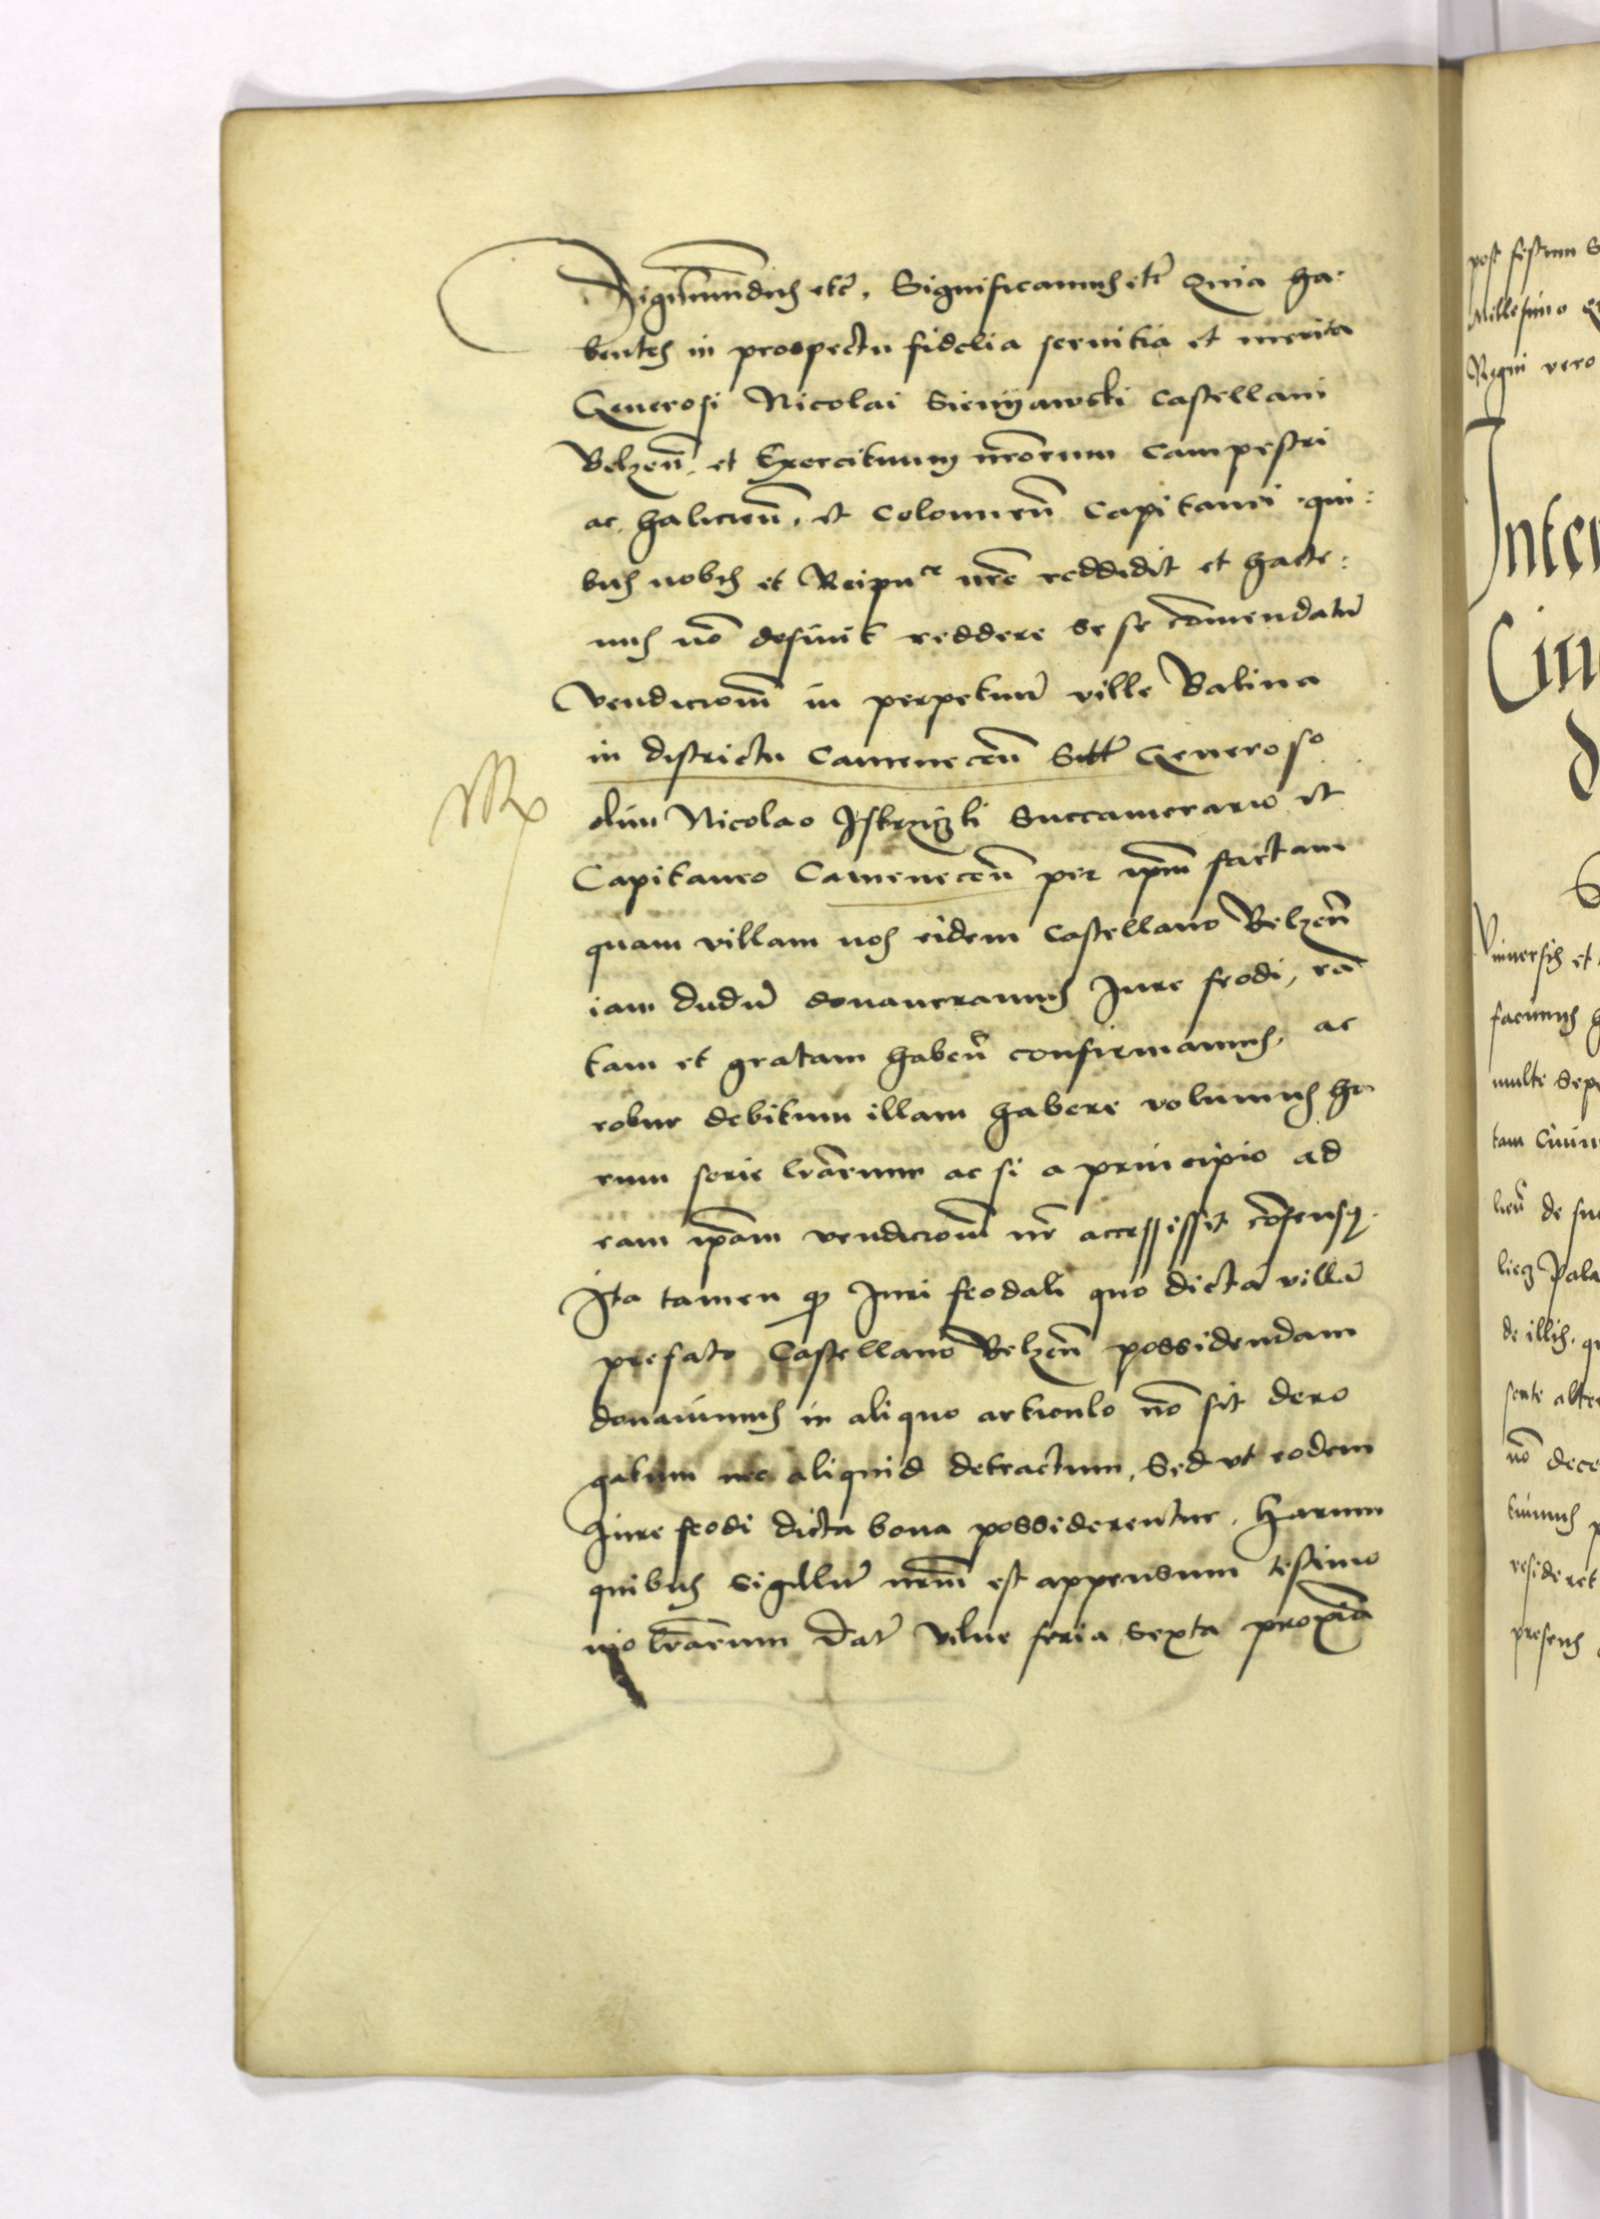 Sigismundus etc̃. Significamus etc̃ Quia ha:
bentes in prospectu fidelia seruitia et merita
Generosi Nicolai Sienyawski Castellani
Belzeñ. et Exercituum nr̃orum Campestri
ac halicieñ. et Colomieñ Capitanei qui:
bus nobis et Reipuce nr̃e reddidit et hacte:
nus nõ desinit reddere se se cõmendatũ
vendicionẽm in perpetuũ ville Balina
in districtu Cameneceñ Sitẽ Generoso
olim Nicolao Iskrziczki Succamerario et
Capitaneo Cameneceñ per ip̃m factam
quam villam nos eidem Castellano Belzeñ
iam dudũ donaueramus Iure feodi, ra
tam et gratam habeñ confirmamus, ac
robur debitum illam habere volumus ha
rum serie lr̃arum ac si a principio ad
eam ip̃am vendicionẽm nr̃ accessissit cõsensus.
Ita tamen qp Iuri feodali quo dictã villã
prefato Castellano Belzeñ possidendam
donauimus in aliquo articulo nõ sit dero
gatum nec aliquid detractum, Sed vt eodem
Iure feodi dicta bona possiderentur. Harum
quibus sigillũ nr̃m est appensum testimo
nio lr̃arum Dat̃ Vilne feria sexta proxĩa
post festum S
Millesimo
Regni vero
Inter
Ciu
d
Vniuersis et
facimus
multe sepe
tam Ciuiu
lieñ de su
Pala
de illis. qu
sente alte
nõ dece
tuimus p
resideret
presens